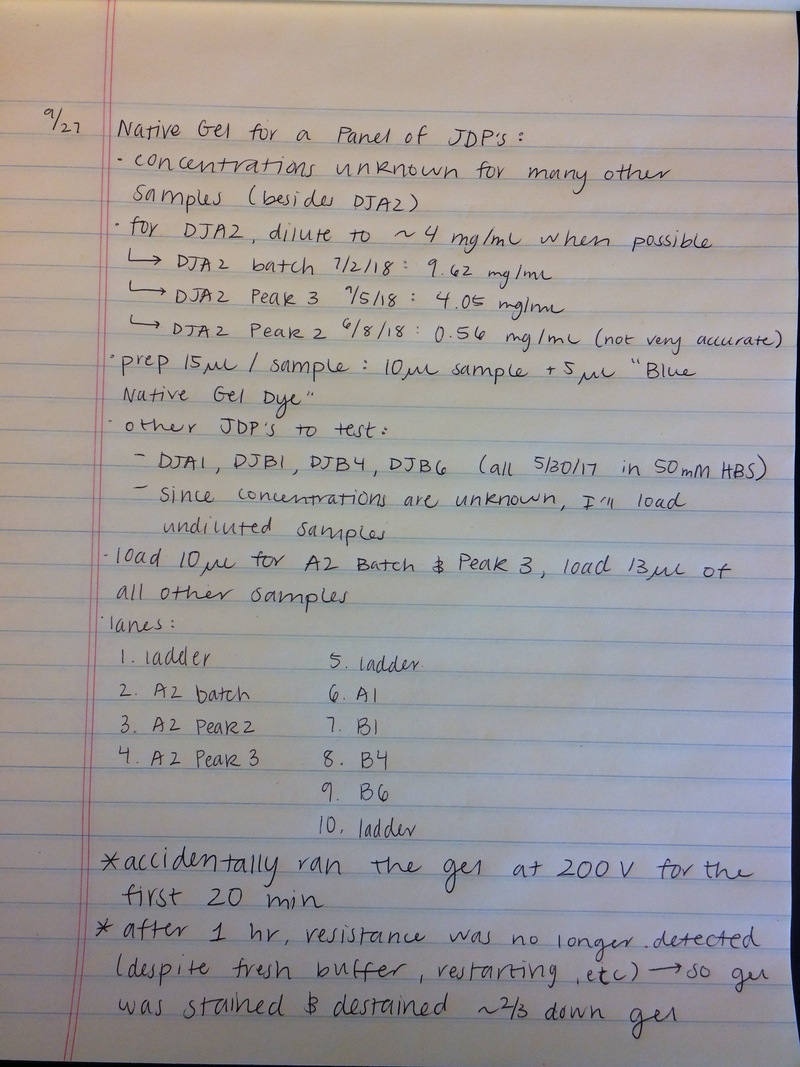 9/27 Native Gel for a Panel of JDP's:
· concentrations unknown for many other
samples (besides DJA2)
· for DJA2, dilute to ~ 4 mg/mL when possible
↳ DJA2 batch 7/2/18: 9.62 mg/mL
↳ DJA2 Peak 3 9/5/18: 4.05 mg/mL
↳ DJA2 Peak 2 6/8/18: 0.56 mg/mL (not very accurate)
· prep 15 µL / sample: 10 µL sample + 5 µL "Blue
Native Gel Dye"
· other JDP's to test:
- DJA1, DJB1, DJB4, DJB6 (all 5/30/17 in 50mM HBS)
- since concentrations are unknown, I'll load
undiluted samples
· load 10 µL for A2 Batch & Peak 3, load 13 µL of
all other samples
· lanes:
1. ladder 5. ladder
2. A2 batch 6. A1
3. A2 Peak 2 7. B1
4. A2 Peak 3 8. B4
9. B6
10. ladder
* accidentally ran the gel at 200 V for the
first 20 min
* after 1 hr, resistance was no longer detected
(despite fresh buffer, restarting, etc) → so gel
was stained & destained ~2/3 down gel